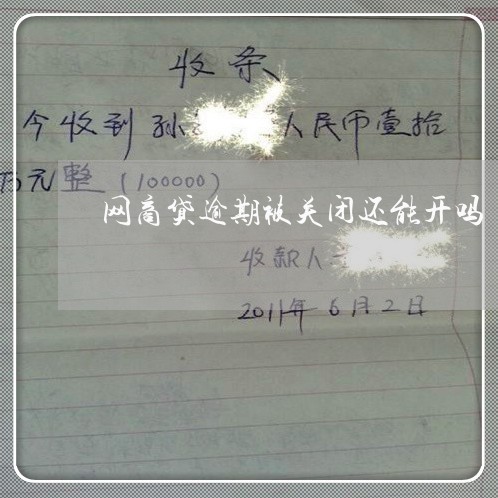 收条
今收到孙人民币壹拾
万元整(100000)
网商贷逾期被关闭还能开吗
收款人
2011年6月2日